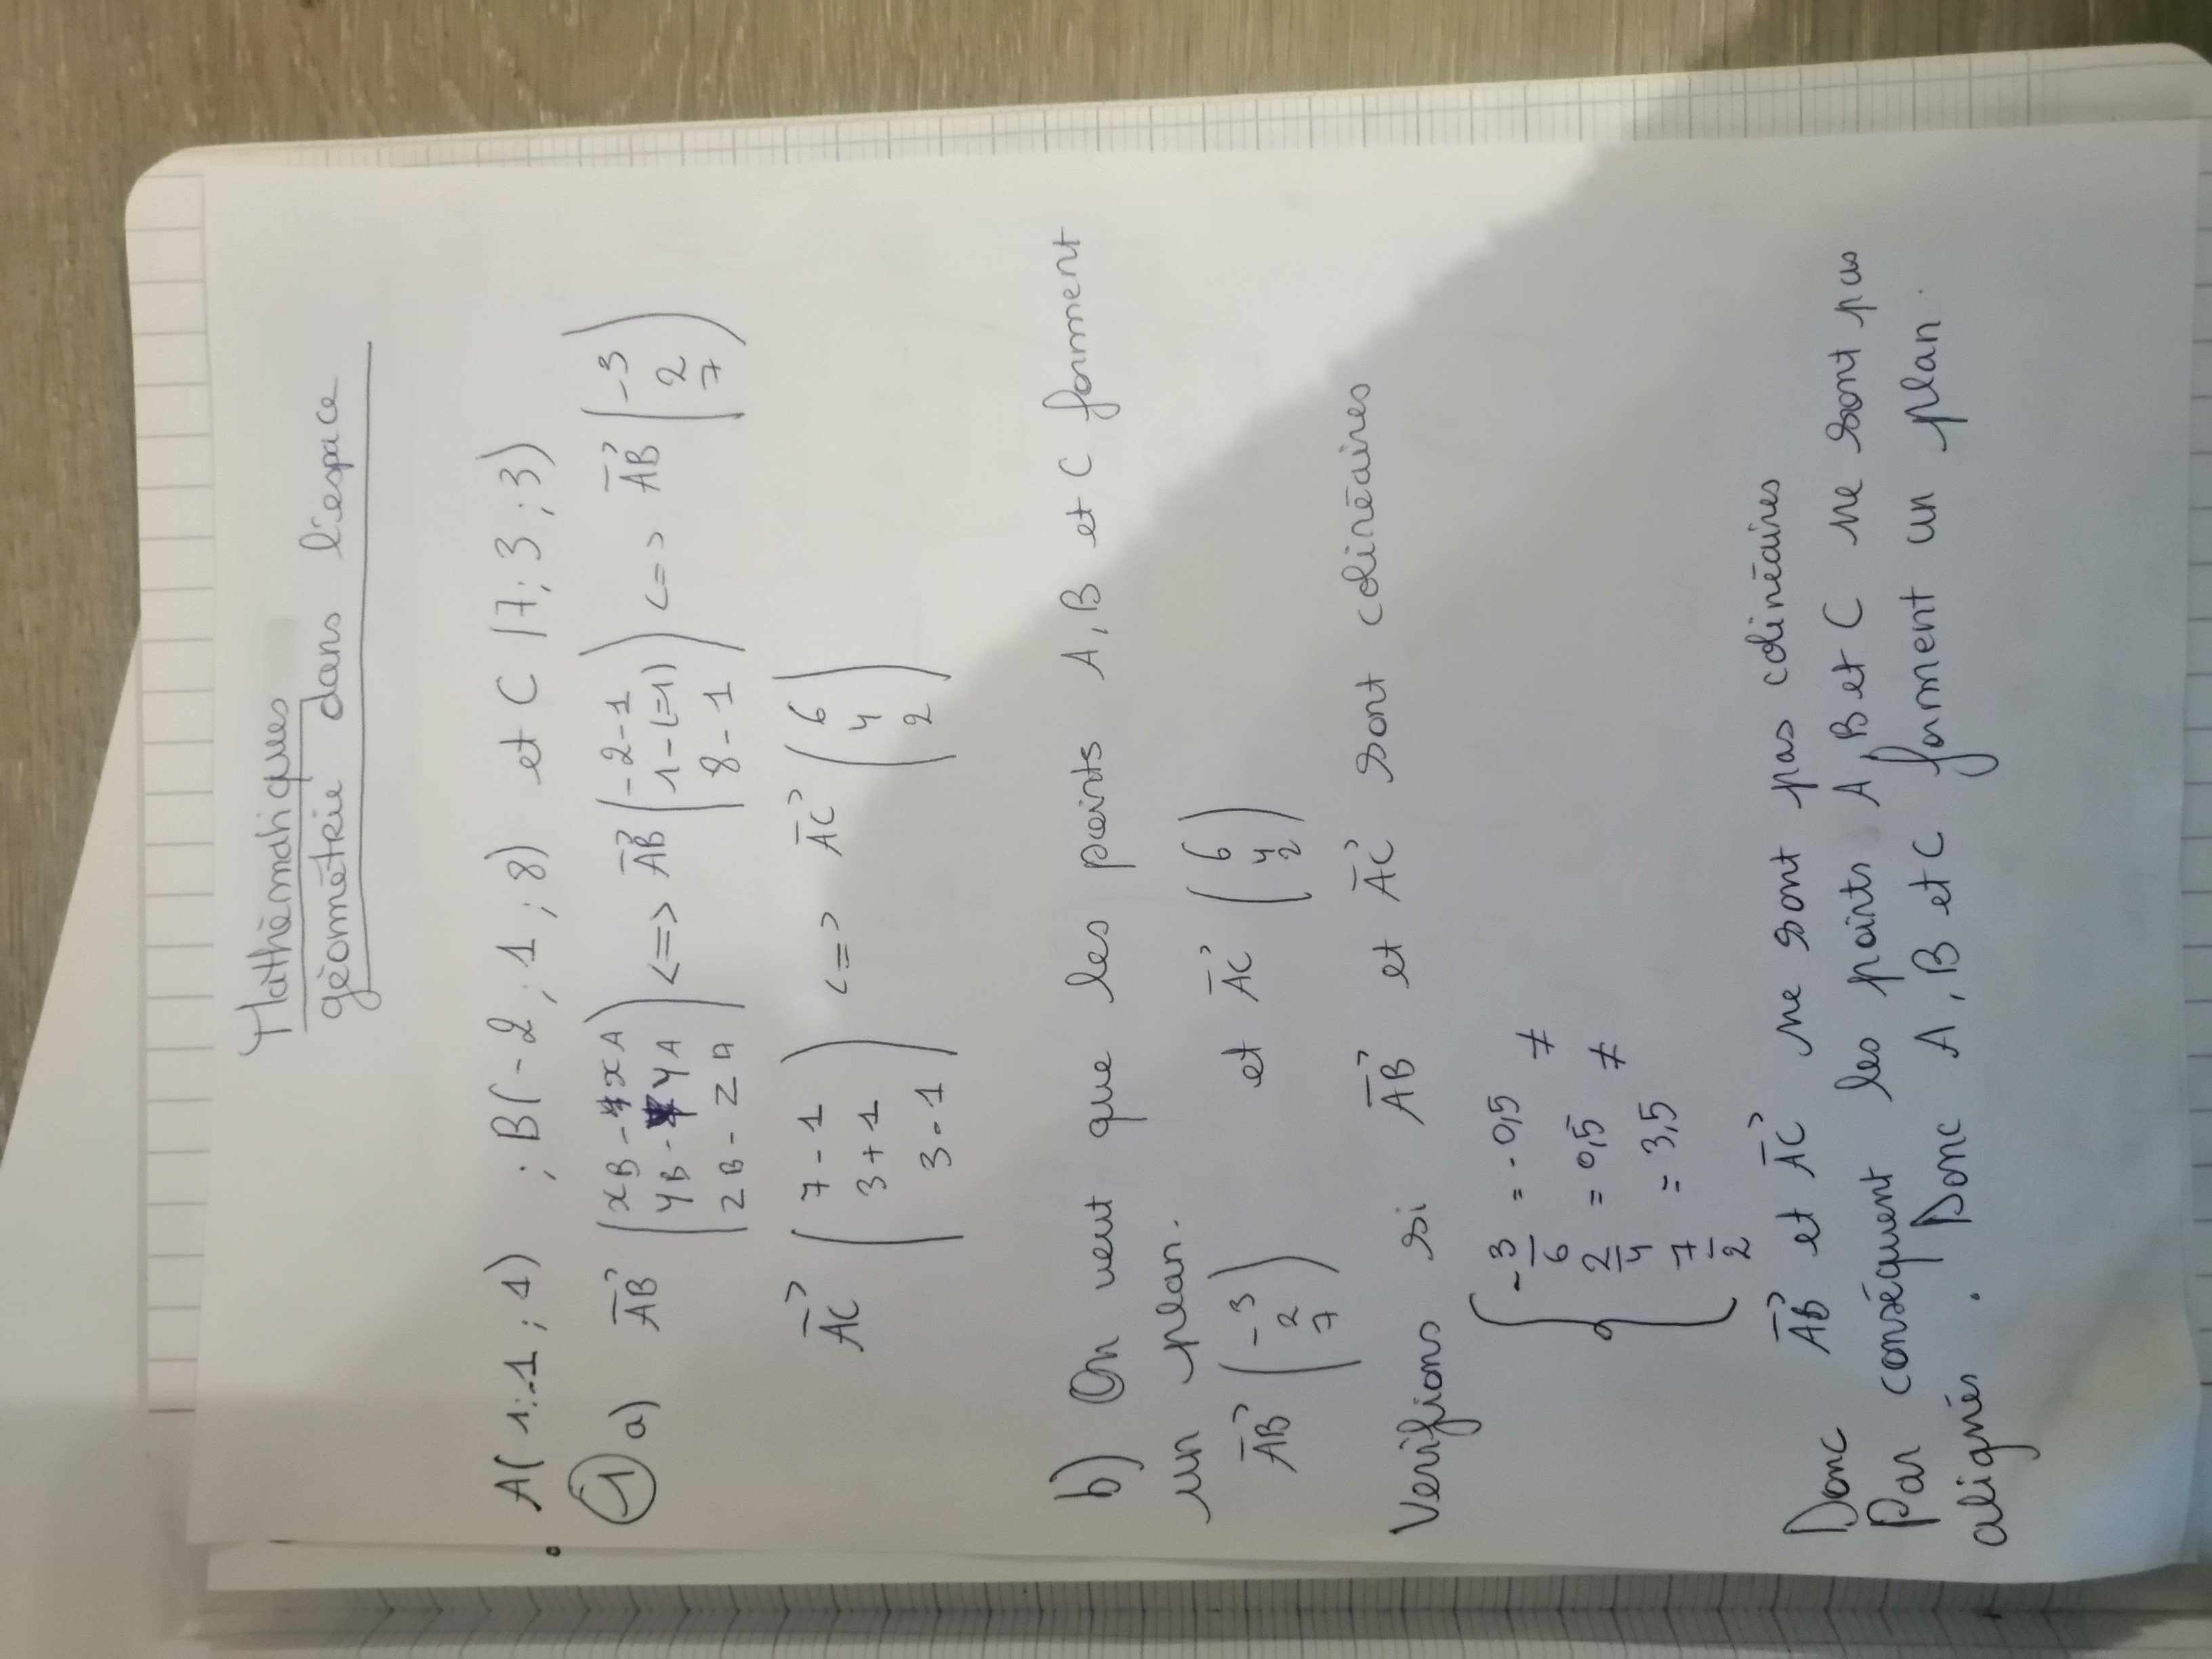 Mathématiques
géométrie dans l'espace
A(1;-1;1) ; B(-2;1;8) et C(7;3;3)
① a) AB⃗ (xB-xA yB-yA zB-zA) <=> AB⃗ (-2-1 1-(-1) 8-1) <=> AB⃗ (-3 2 7)
AC⃗ (7-1 3+1 3-1) <=> AC⃗ (6 4 2)
b) On veut que les points A, B et C forment
un plan.
AB⃗ (-3 2 7) et AC⃗ (6 4 2)
Verifions si AB⃗ et AC⃗ sont colinéaires
{ -3/6 = -0,5 ≠
2/4 = 0,5 ≠
7/2 = 3,5
Donc AB⃗ et AC⃗ ne sont pas colinéaires
Par conséquent les points A, B et C ne sont pas
alignés. Donc A, B et C forment un plan.